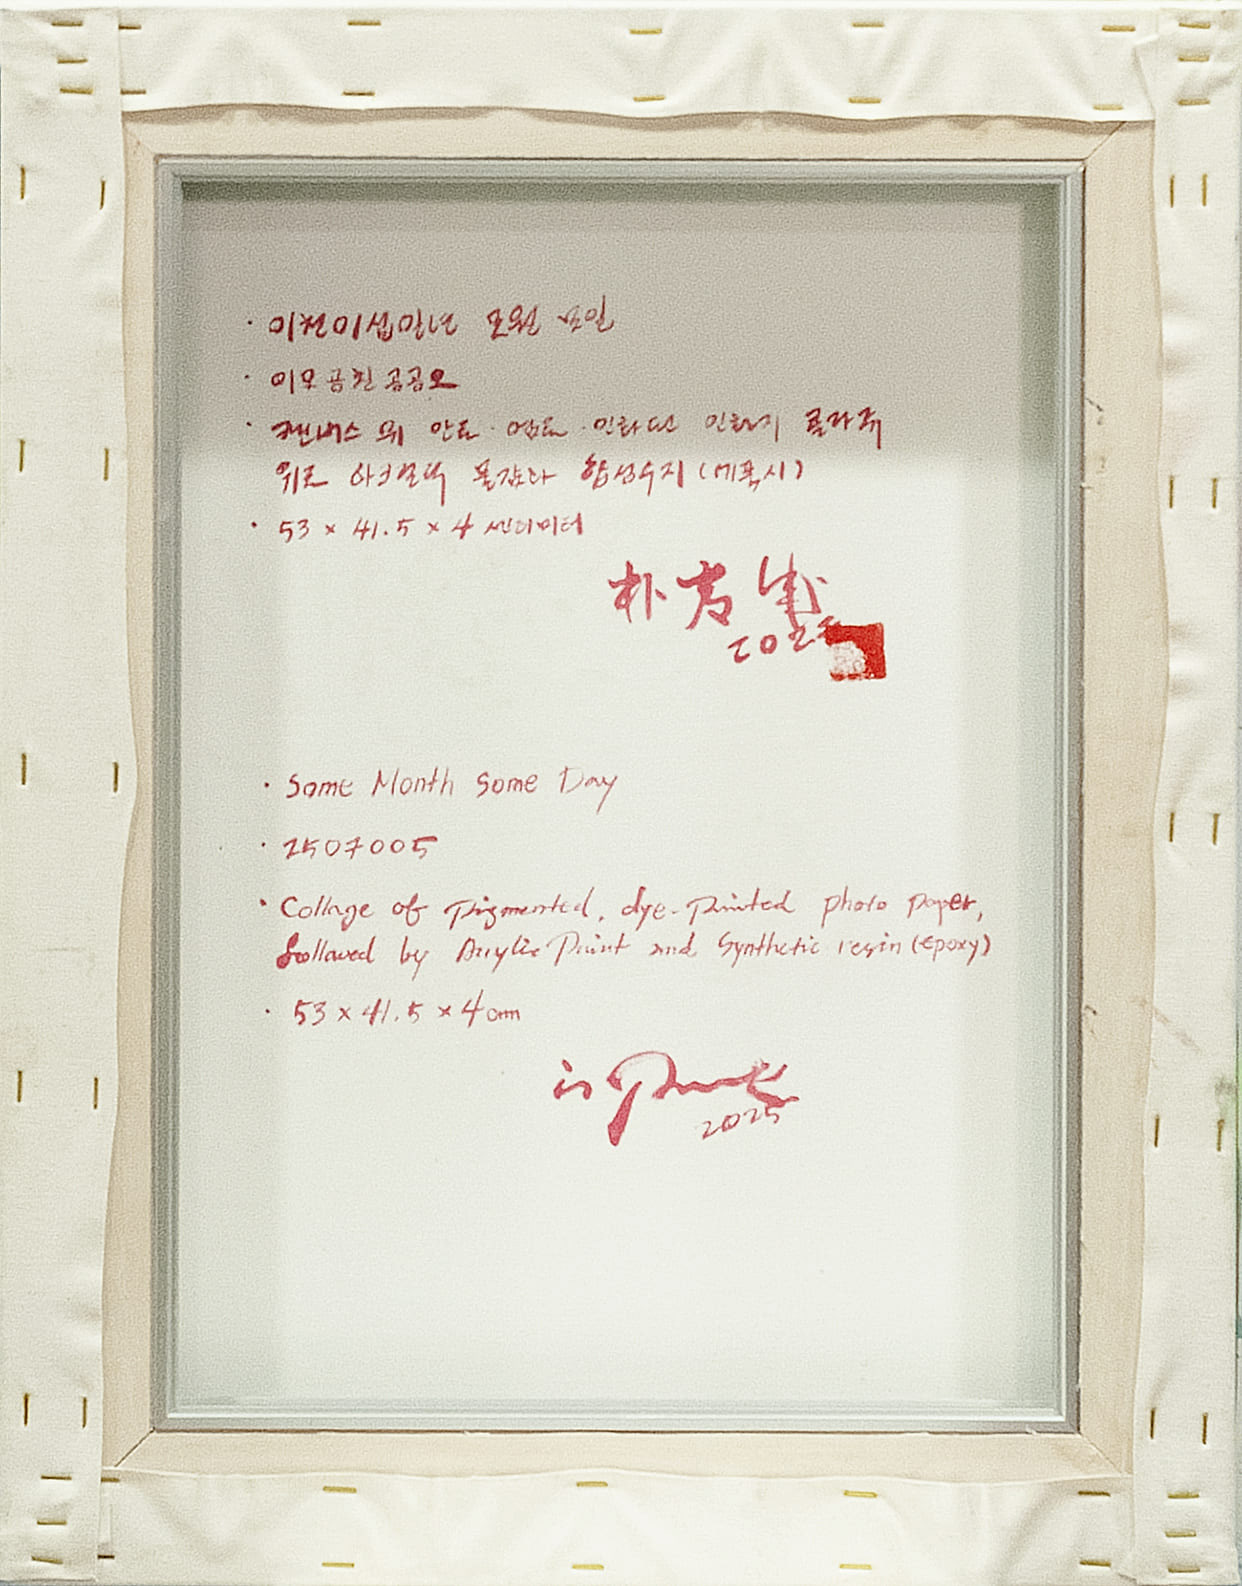 · 이천이십오년 모월 모일
· 이오공칠공공오
· 캔버스 위 안료·염료·인화된 인화지 콜라주
위로 아크릴릭 물감과 합성수지(에폭시)
· 53 x 41.5 x 4 센티미터
朴
2025
· Some Month Some Day
· 2507005
· Collage of pigmented, dye-printed photo paper,
followed by Acrylic Paint and Synthetic resin (epoxy)
· 53 x 41.5 x 4 cm
2025